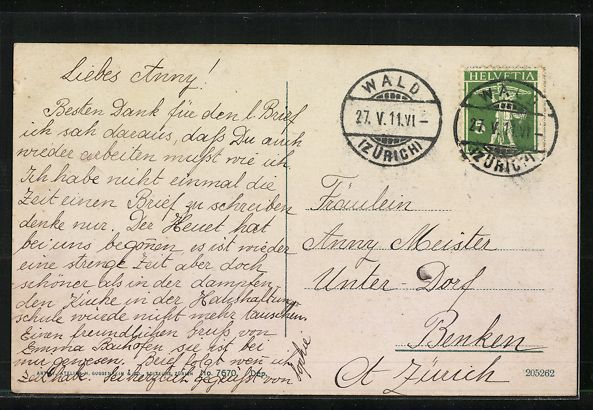 Liebes Anny!
Besten Dank für den l. Brief
ich sah daraus, daß Du auch
wieder arbeiten mußt wie ich
Ich habe nicht einmal die
Zeit einen Brief zu schreiben
denke nur. Der Heuet hat
bei uns begonen, es ist wieder
eine strenge Zeit aber doch
schöner als in der dampfen
den Küche in der Haushaltungs
schule würde nicht mehr tauschen.
Einen freundlichen Gruß von
Emma sie ist bei
mir gewesen. Brief folgt wen ich
Zeit habe. Sei herzlich gegrüßt von
Sophie
WALD
27. V. 11. VI –
(ZÜRICH)
HELVETIA
5
WALD
27. V. 11. VI –
(ZÜRICH)
Fräulein
Anny Meister
Unter-Dorf
Benken
Ct Zürich
No. 7670. Dep.
205262